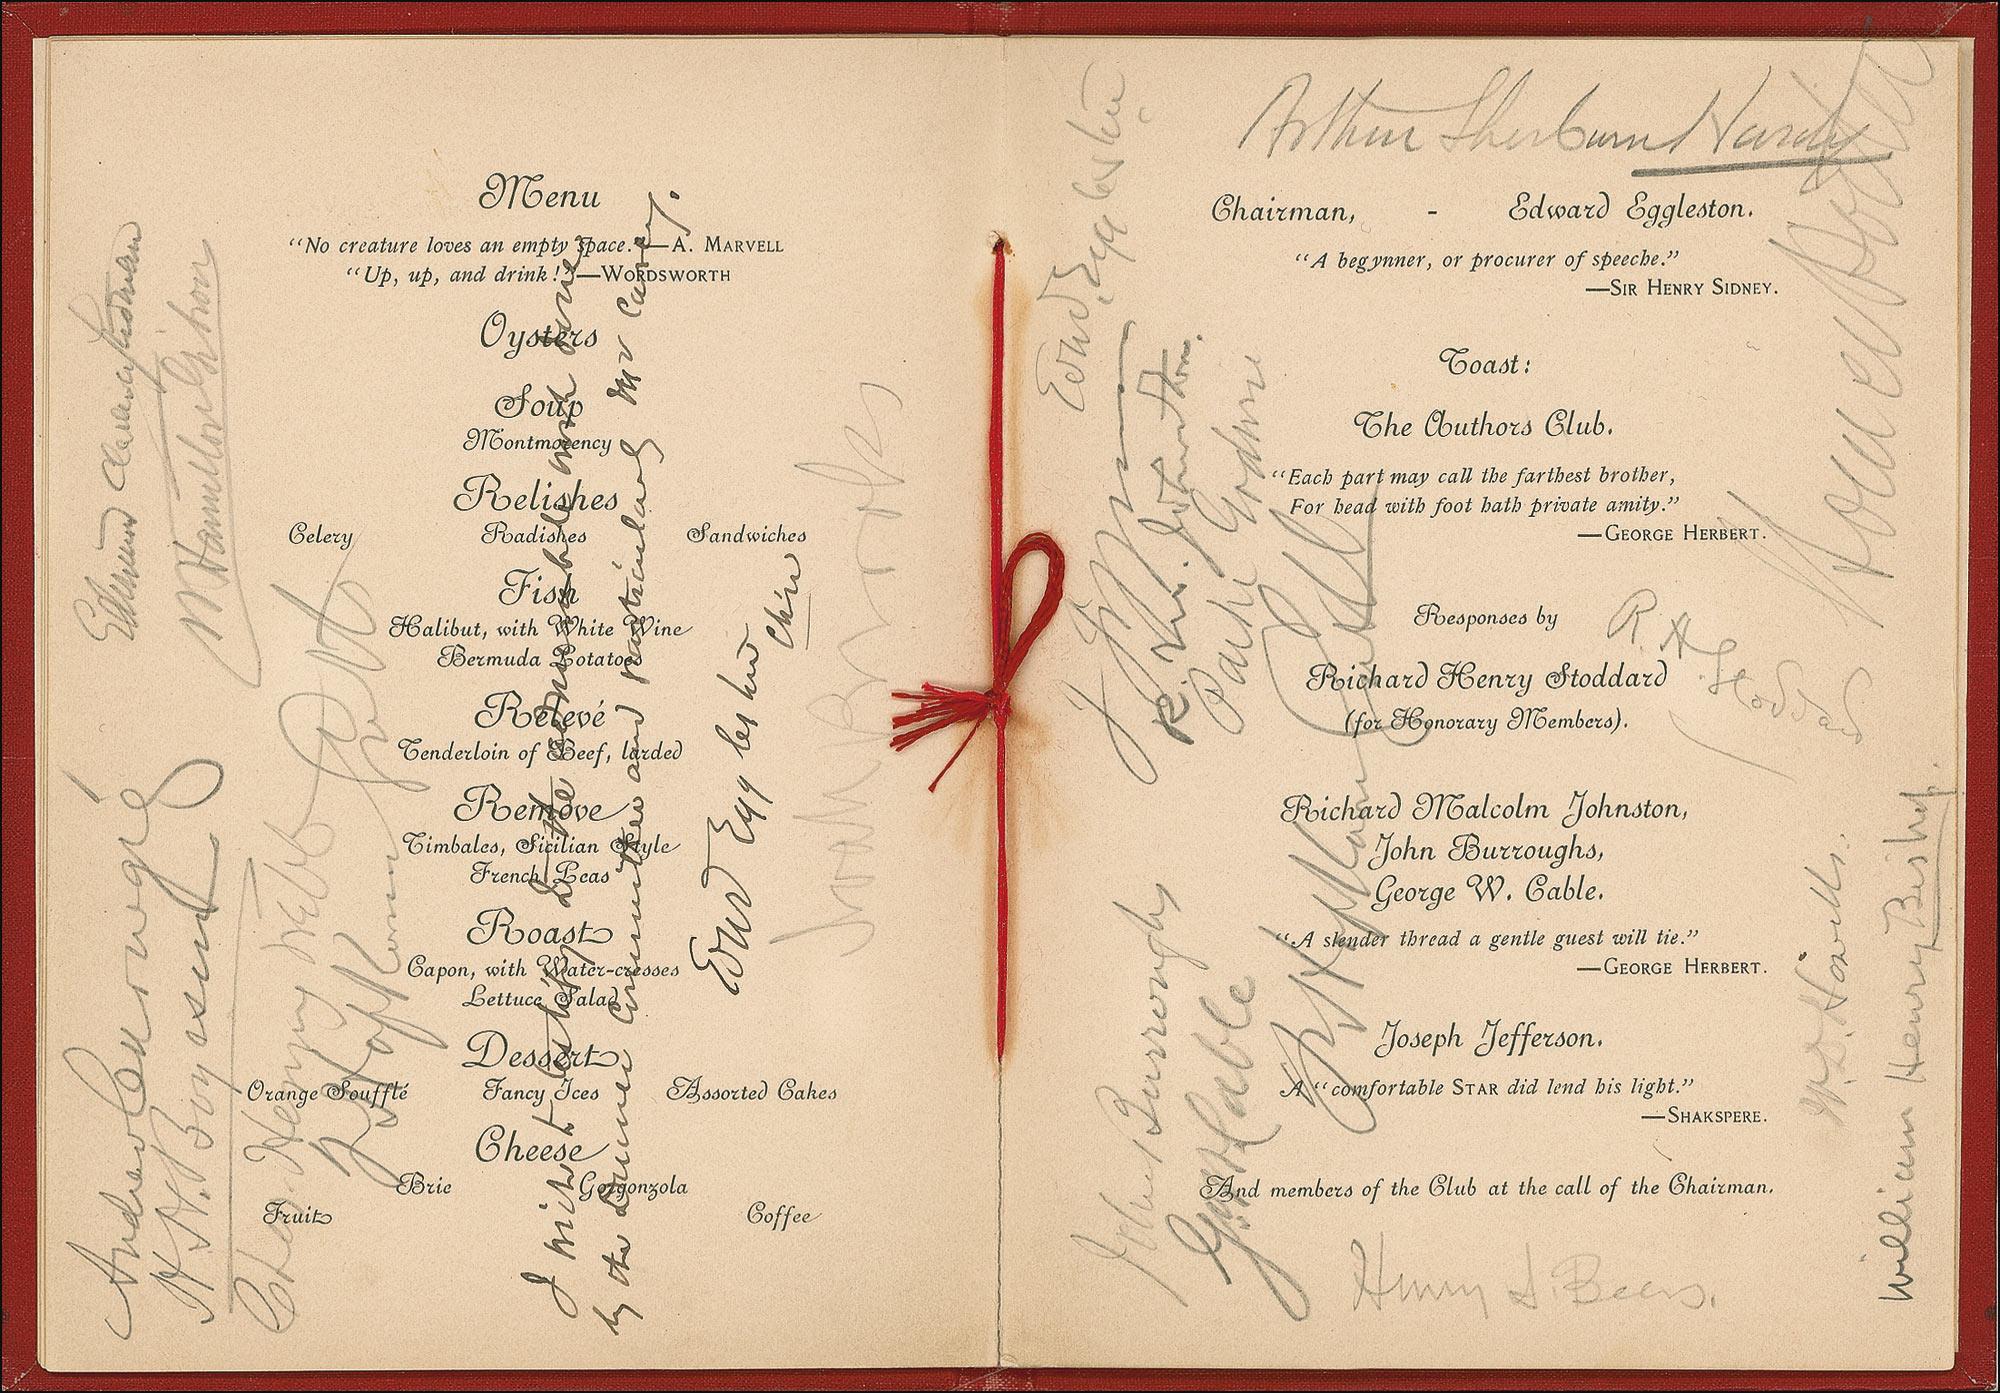 Menu
“No creature loves an empty space.”—A. MARVELL
“Up, up, and drink!”—WORDSWORTH
Oysters
Soup
Montmorency
Relishes
Celery Radishes Sandwiches
Fish
Halibut, with White Wine
Bermuda Potatoes
Relevé
Tenderloin of Beef, larded
Remove
Timbales, Sicilian Style
French Peas
Roast
Capon, with Water-cresses
Lettuce Salad
Dessert
Orange Soufflé Fancy Ices Assorted Cakes
Cheese
Brie Gorgonzola
Fruit Coffee
Andrew Carnegie
H. H. Boyesen
Edmund Clarence Stedman
W Hamilton Gibson
Chas. Henry Webb
I wish to testify to the admirable work done
by the Dinner Committee and particularly Mr Carey.
Edw Eggleston
Chn
Noah Brooks
Arthur Sherburne Hardy
Chairman, - Edward Eggleston.
“A begynner, or procurer of speeche.”
—SIR HENRY SIDNEY.
Toast:
The Authors Club.
“Each part may call the farthest brother,
For head with foot hath private amity.”
—GEORGE HERBERT.
Responses by
Richard Henry Stoddard
(for Honorary Members).
Richard Malcolm Johnston,
John Burroughs,
George W. Cable.
“A slender thread a gentle guest will tie.”
—GEORGE HERBERT.
Joseph Jefferson.
A “comfortable STAR did lend his light.”
—SHAKSPERE.
And members of the Club at the call of the Chairman.
Edw. Eggleston
R. M. Johnston.
Parke Godwin
John Burroughs
G. W. Cable
R. H. Stoddard
W. D. Howells.
William Henry Bishop.
Henry A. Beers.